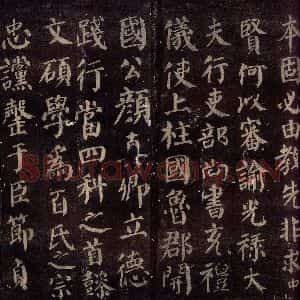 本固必由先非求中
賢何以審諭光祿大
夫行吏部尚書充禮
儀使上柱國魯郡開
國公顏真卿立德
踐行當四科之首懿
文碩學為百氏之宗
忠讜罄于臣節貞
Shufawang.CN